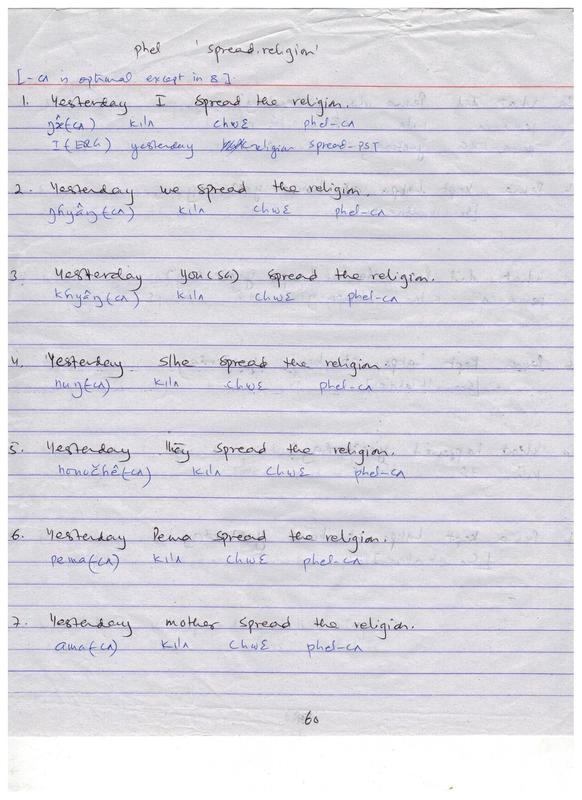 phel 'spread.religion'
[-cʌ is optional except in 8].
1. Yesterday I spread the religion.
ŋɤ̂(cʌ) kilʌ chwɛ phel-cʌ
I(ERG) yesterday religion spread-PST
2. Yesterday we spread the religion.
ŋhyâŋ(-cʌ) kilʌ chwɛ phel-cʌ
3. Yesterday you(SG) spread the religion.
khyâŋ(-cʌ) kilʌ chwɛ phel-cʌ
4. Yesterday s/he spread the religion.
huŋ(-cʌ) kilʌ chwɛ phel-cʌ
5. Yesterday they spread the religion.
kilʌ chwɛ phel-cʌ
6. Yesterday Pema spread the religion.
pema(-cʌ) kilʌ chwɛ phel-cʌ
7. Yesterday mother spread the religion.
ama(-cʌ) kilʌ chwɛ phel-cʌ
60